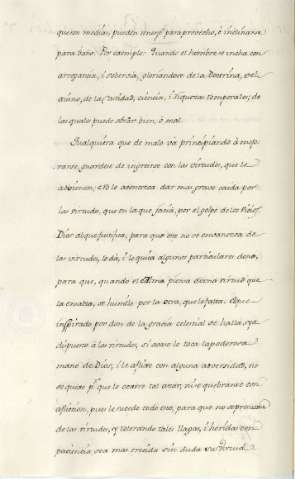 queson medias, pueden usarse para provecho, ó inclinarse
para daño. Por exemplo: Quando el hombre se incha con
arrogancia, i soberbia, gloriandose de la Doctrina, vel
ayuno, de la castidad, ciencia, i riquezas temporales; de
las quales puede obrar bien, ò mal.
Qualquiera que de malo va principiando à mejo-
rarse, guardese de engreirse con las virtudes, que le
no le acontezca dar mas grave caida por
las virtudes, que en la que por el golpe de los
Dios al que justifica, para que no se envanezca de
las virtudes, le dà, i le quita algunos particulares dones,
para que, quando el Alma piensa de una virtud que
la ensalza, se humille por la otra, que le falta. El que
inspirado por don de la gracia celestial se halla, ya
dispuesto à las virtudes, si acaso le toca la poderosa
mano de Dios, i le aflige con alguna adversidad, no
es quiza pª que le ni quebrarse con
afliccion, pues le sucede todo eso, para que no
de las virtudes, y tolerando tales llagas, i heridas con
paciencia, sea mas crecida sin duda su virtud.